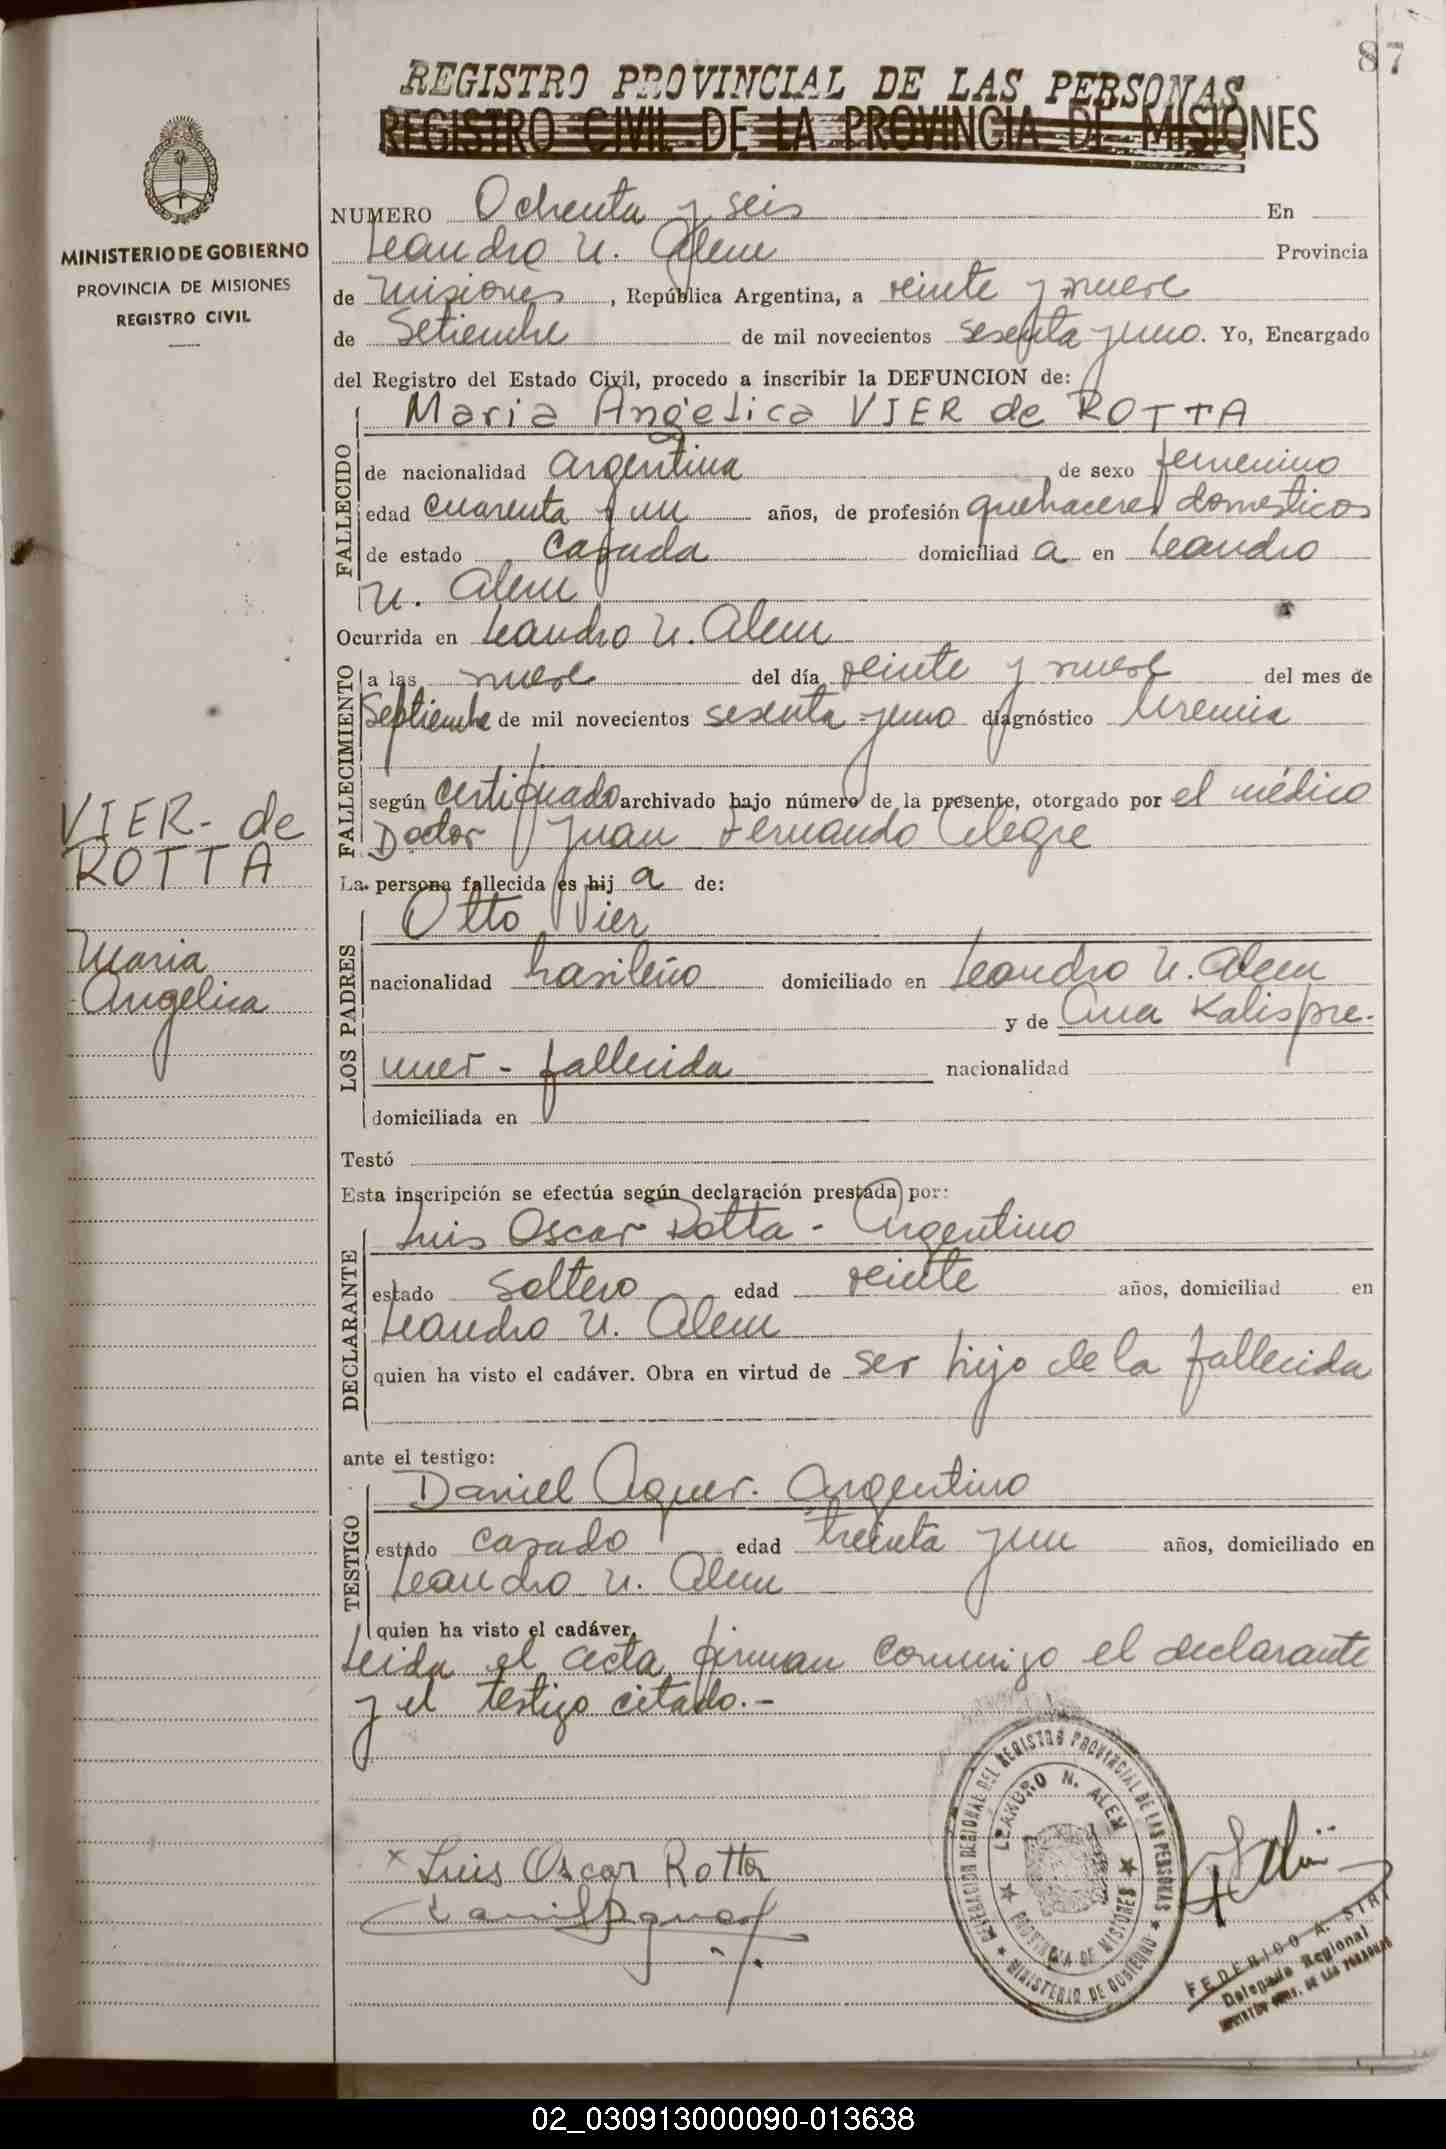 87
REGISTRO PROVINCIAL DE LAS PERSONAS
REGISTRO CIVIL DE LA PROVINCIA DE MISIONES
MINISTERIO DE GOBIERNO
PROVINCIA DE MISIONES
REGISTRO CIVIL
NUMERO Ochenta y seis En
Leandro N. Alem Provincia
de Misiones, República Argentina, a veinte y nueve
de Setiembre de mil novecientos sesenta y uno. Yo, Encargado
del Registro del Estado Civil, procedo a inscribir la DEFUNCION de:
FALLECIDO
Maria Angelica VIER de ROTTA
de nacionalidad argentina de sexo femenino
edad cuarenta y un años, de profesión quehaceres domesticos
de estado casada domiciliad a en Leandro
N. Alem
Ocurrida en Leandro N. Alem
FALLECIMIENTO
a las nueve del día veinte y nueve del mes de
Septiembre de mil novecientos sesenta y uno diagnóstico Uremia
según certificado archivado bajo número de la presente, otorgado por el médico
Doctor Juan Fernando Alegre
VIER - de
ROTTA
Maria
Angelica
La persona fallecida es hij a de:
LOS PADRES
Otto Vier
nacionalidad brasileño domiciliado en Leandro N. Alem
y de Ana Kalispre-
nner - fallecida nacionalidad
domiciliada en
Testó
Esta inscripción se efectúa según declaración prestada por:
DECLARANTE
Luis Oscar Rotta - Argentino
estado soltero edad veinte años, domiciliad en
Leandro N. Alem
quien ha visto el cadáver. Obra en virtud de ser hijo de la fallecida
ante el testigo:
TESTIGO
Daniel Aquer. Argentino
estado casado edad treinta y un años, domiciliado en
Leandro N. Alem
quien ha visto el cadáver.
Leida el acta, firman conmigo el declarante
y el testigo citado.-
x Luis Oscar Rotta
DELEGACION REGIONAL DEL REGISTRO PROVINCIAL DE LAS PERSONAS
LEANDRO N. ALEM
PROVINCIA DE MISIONES
MINISTERIO DE GOBIERNO
FEDERICO A.
Delegado Regional
02_030913000090-013638